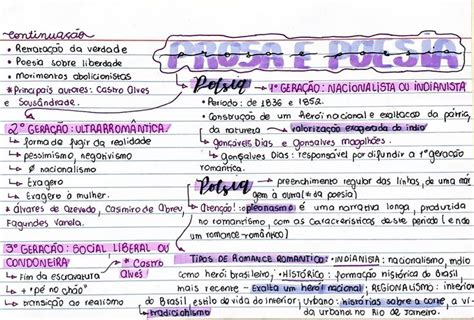 continuação
• Retratação da verdade
• Poesia sobre liberdade
• Movimentos abolicionistas
*Principais autores: Castro Alves
e Sousândrade.
2ª GERAÇÃO: ULTRARROMÂNTICA.
forma de fugir da realidade
pessimismo, negativismo
Ø nacionalismo
Exagero
Exagero à mulher.
*Álvares de Azevedo, Casimiro de Abreu,
Fagundes Varela.
3ª GERAÇÃO: SOCIAL LIBERAL OU
CONDOREIRA
* Castro
Alves
fim da escravatura
+ "pé no chão"
transição ao realismo
PROSA E POESIA
prosa e poesia
Poesia
1ª GERAÇÃO: NACIONALISTA OU INDIANISTA
• Período: de 1836 a 1852.
• Construção de um herói nacional e exaltação da pátria,
da natureza
valorização exagerada do índio
Gonçalves Dias e Gonsalves Magalhães.
Gonsalves Dias: responsável por difundir a 1ª geração
romântica.
Poesia
preenchimento regular das linhas, de uma
gem à outra (≠ da poesia)
Atenção!: pleonasmo é uma narrativa longa, produzida
no romantismo, com as características deste período (e não
um romance romântico)
TIPOS DE ROMANCE ROMÂNTICO: • INDIANISTA: nacionalismo, índio
como herói brasileiro; • HISTÓRICO: formação histórica do Brasil
mais recente - Exalta um herói nacional; REGIONALISMO: interior
do Brasil, estilo de vida do interior; urbano: histórias sobre a corte, a vi
tradicionalismo
urbana no Rio de Janeiro.